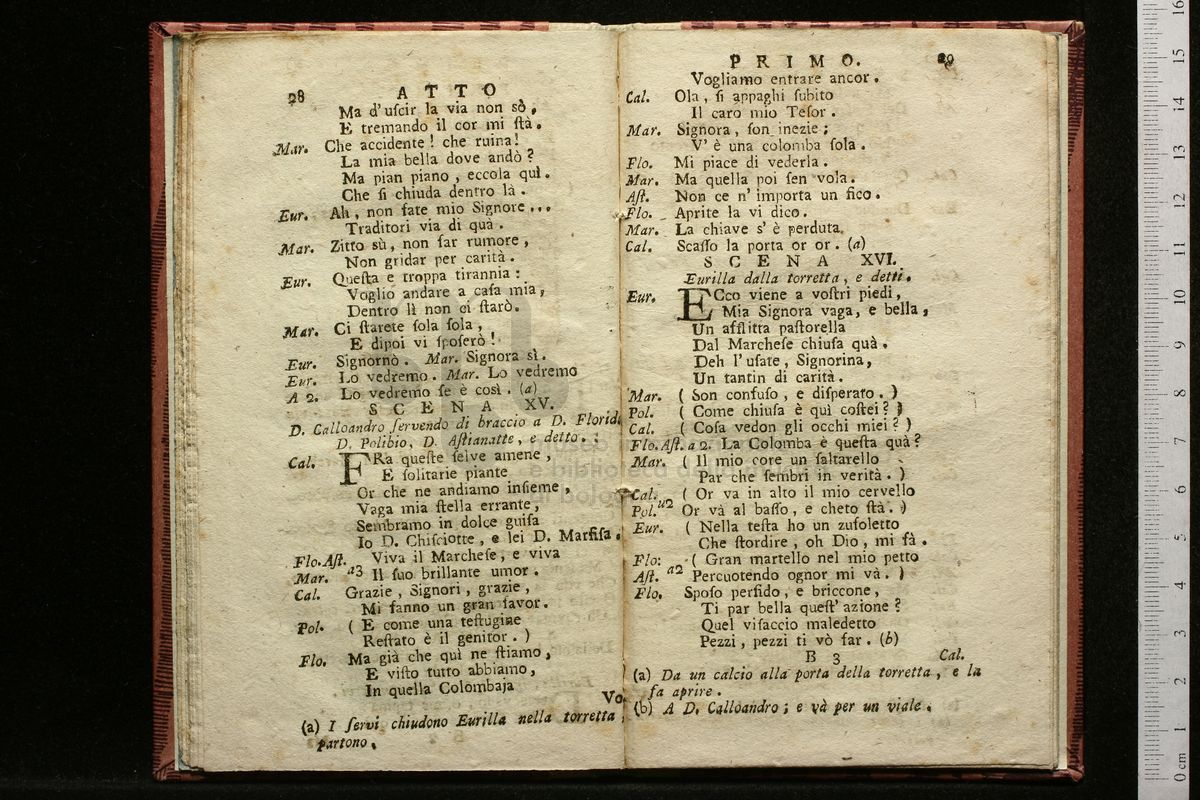 28 ATTO
Ma d'uſcir la via non sò.
E tremando il cor mi ſtà.
Mar. Che accidente! che ruina!
La mia bella dove andò?
Ma pian piano, eccola quì.
Che ſi chiuda dentro là.
Eur. Ah, non fate mio Signore...
Traditori via di quà.
Mar. Zitto sù, non far rumore,
Non gridar per carità.
Eur. Queſta e troppa tirannia:
Voglio andare a caſa mia,
Dentro lì non ci ſtarò.
Mar. Ci ſtarete ſola ſola,
E dipoi vi ſpoſerò!
Eur. Signornò. Mar. Signora sì.
Eur. Lo vedremo. Mar. Lo vedremo
A 2. Lo vedremo ſe è così. (a)
SCENA XV.
D. Calloandro ſervendo di braccio a D. Florid
D. Polibio, D. Aſtianatte, e detto.:
Cal. FRa queſte ſelve amene,
E ſolitarie piante
Or che ne andiamo inſieme,
Vaga mia ſtella errante,
Sembramo in dolce guiſa
Io D. Chiſciotte, e lei D. Marfiſa.
Flo. Aſt. Viva il Marcheſe, e viva
Mar. a3 Il ſuo brillante umor.
Cal. Grazie, Signori, grazie,
Mi fanno un gran favor.
Pol. ( E come una teſtugine
Reſtato è il genitor. )
Flo. Ma già che quì ne ſtiamo,
E viſto tutto abbiamo,
In quella Colombaja
Vo
(a) I ſervi chiudono Eurilla nella torretta,
partono.
PRIMO. 29
Vogliamo entrare ancor.
Cal. Ola, ſi appaghi ſubito
Il caro mio Teſor.
Mar. Signora, ſon inezie;
V' è una colomba ſola.
Flo. Mi piace di vederla.
Mar. Ma quella poi ſen vola.
Aſt. Non ce n' importa un fico.
Flo. Aprite la vi dico.
Mar. La chiave s' è perduta.
Cal. Scaſſo la porta or or. (a)
SCENA XVI.
Eurilla dalla torretta, e detti.
Eur. ECco viene a voſtri piedi,
Mia Signora vaga, e bella,
Un afflitta paſtorella
Dal Marcheſe chiuſa quà.
Deh l' uſate, Signorina,
Un tantin di carità.
Mar. ( Son confuſo, e diſperato. )
Pol. ( Come chiuſa è quì coſtei? )
Cal. ( Coſa vedon gli occhi miei? )
Flo. Aſt. a 2. La Colomba è queſta quà?
Mar. ( Il mio core un ſaltarello
Par che ſembri in verità. )
Cal. ( Or va in alto il mio cervello
Pol. a2 Or và al baſſo, e cheto ſtà. )
Eur. ( Nella teſta ho un zufoletto
Che ſtordire, oh Dio, mi fà.
Flo: ( Gran martello nel mio petto
Aſt. a2 Percuotendo ognor mi và. )
Flo. Spoſo perfido, e briccone,
Ti par bella queſt' azione?
Quel viſaccio maledetto
Pezzi, pezzi ti vò far. (b)
B 3 Cal.
(a) Da un calcio alla porta della torretta, e la
fa aprire.
(b) A D. Calloandro; e và per un viale.